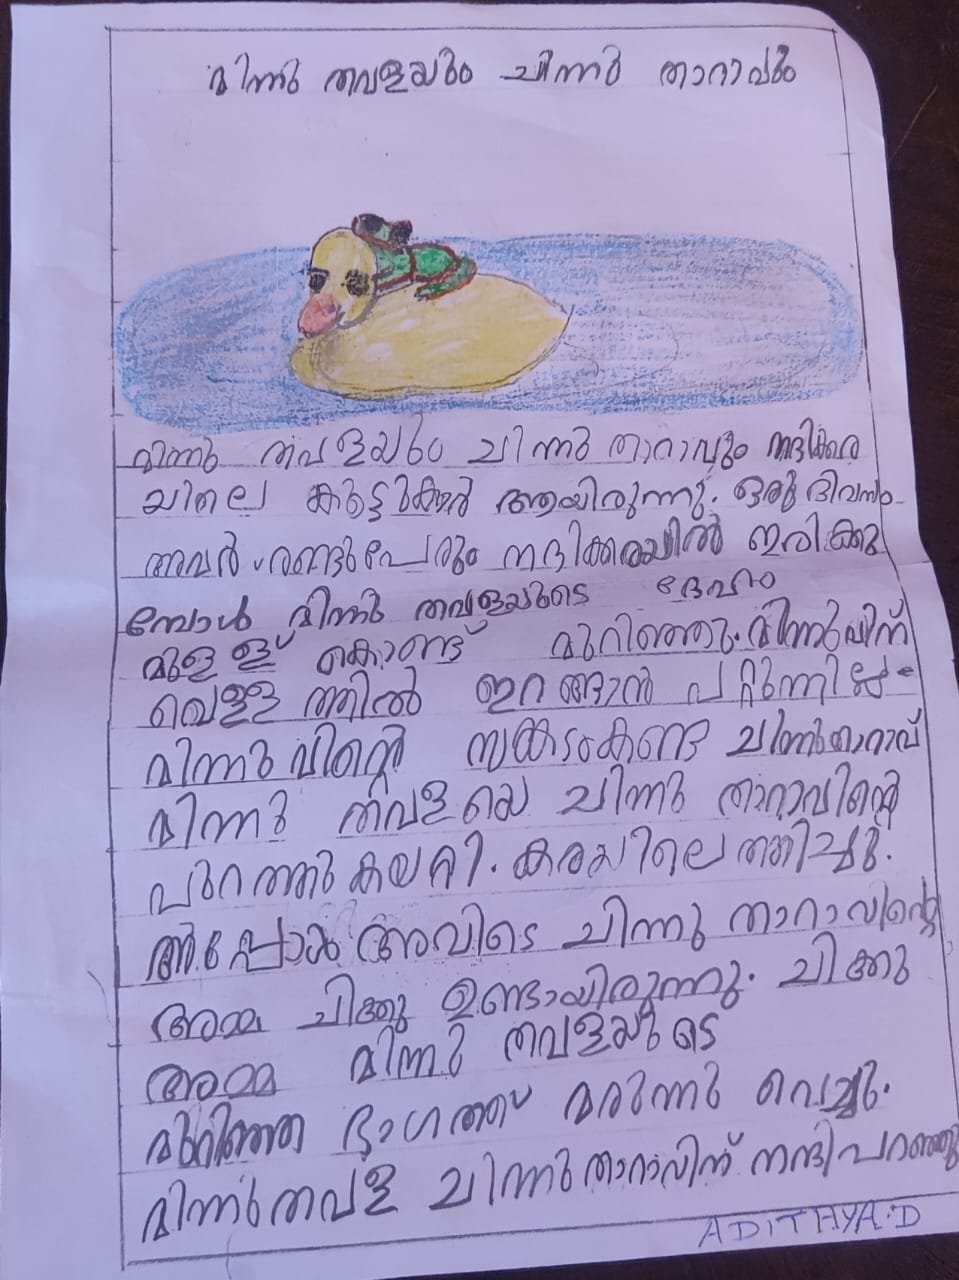 മിന്നു തവളയും ചിന്നു താറാവും
മിന്നു തവളയും ചിന്നു താറാവും നദികരെ
യിലെ കുട്ടുകാർ ആയിരുന്നു. ഒരു ദിവസം
അവർ രണ്ടുപേരും നദിക്കരയിൽ ഇരിക്കു
മ്പോൾ മിന്നു തവളയുടെ ദേഹം
മുള്ള് കൊണ്ട് മുറിഞ്ഞു. മിന്നുവിന്
വെള്ളത്തിൽ ഇറങ്ങാൻ പറ്റുന്നില്ല.
മിന്നുവിന്റെ സങ്കടംകണ്ട ചിന്നുതാറാവ്
മിന്നു തവളയെ ചിന്നു താറാവിന്റെ
പുറത്തു കയറ്റി. കരയിലെത്തിച്ചു.
അപ്പോൾ അവിടെ ചിന്നു താറാവിന്റെ
അമ്മ ചിക്കു ഉണ്ടായിരുന്നു. ചിക്കു
അമ്മ മിന്നു തവളയുടെ
മുറിഞ്ഞ ഭാഗത്ത് മരുന്നു വെച്ചു.
മിന്നുതവള ചിന്നുതാറാവിന് നന്ദിപറഞ്ഞു
ADITHYA.D